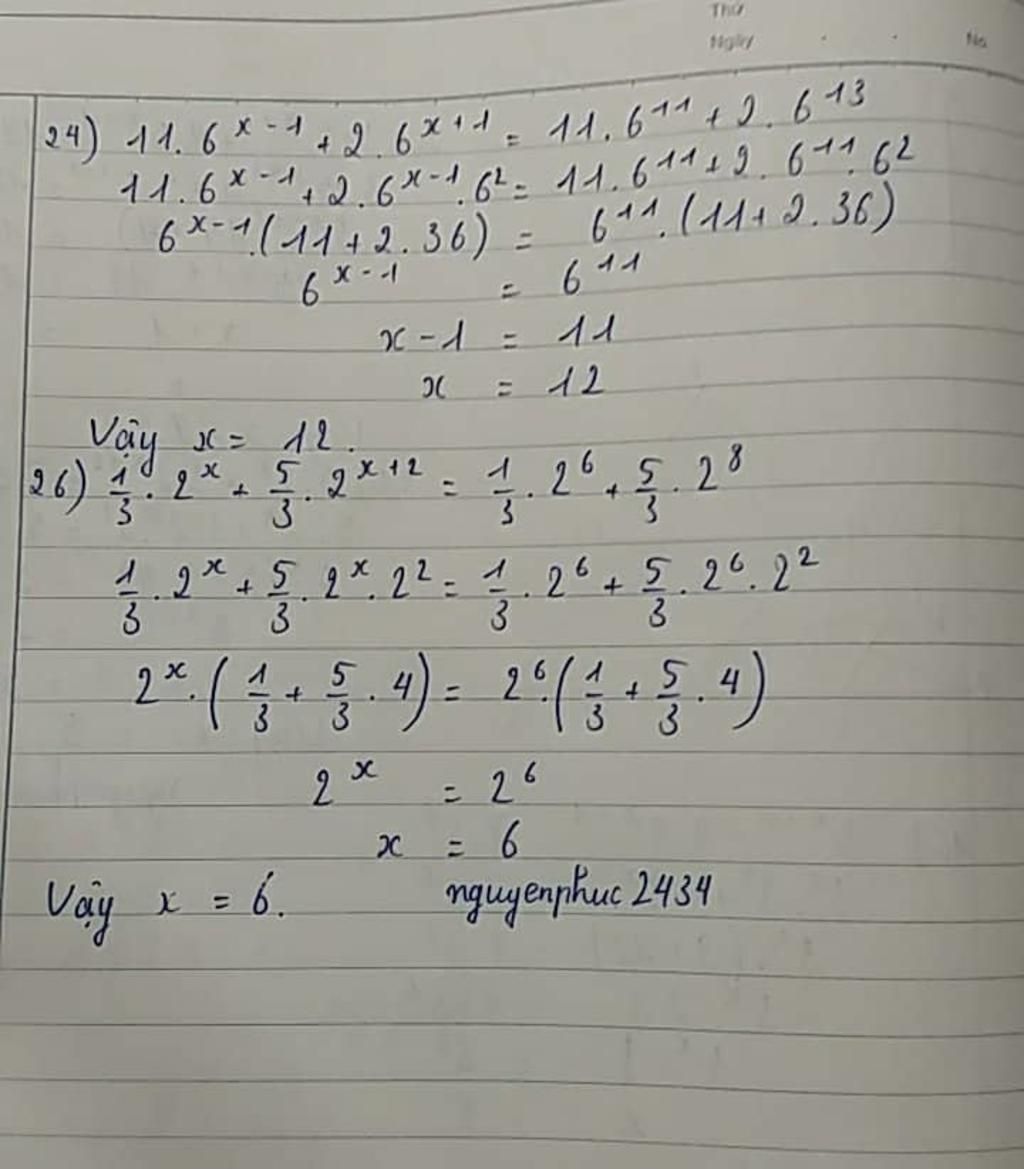 Thứ
Ngày . . No
24) 11.6^{x-1} + 2.6^{x+1} = 11.6^{11} + 2.6^{13}
11.6^{x-1} + 2.6^{x-1}.6^2 = 11.6^{11} + 2.6^{11}.6^2
6^{x-1}.(11 + 2.36) = 6^{11}.(11 + 2.36)
6^{x-1} = 6^{11}
x - 1 = 11
x = 12
Vậy x = 12.
26) \frac{1}{3}.2^x + \frac{5}{3}.2^{x+2} = \frac{1}{3}.2^6 + \frac{5}{3}.2^8
\frac{1}{3}.2^x + \frac{5}{3}.2^x.2^2 = \frac{1}{3}.2^6 + \frac{5}{3}.2^6.2^2
2^x.(\frac{1}{3} + \frac{5}{3}.4) = 2^6.(\frac{1}{3} + \frac{5}{3}.4)
2^x = 2^6
x = 6
Vậy x = 6. nguyenphuc2434